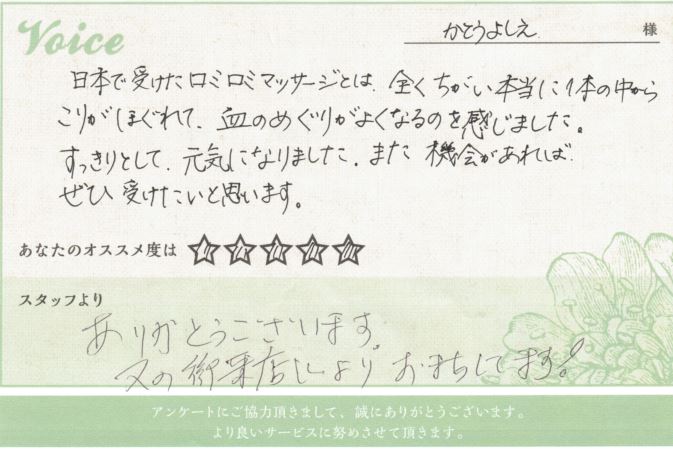 Voice
かとうよしえ 様
日本で受けたロミロミマッサージとは、全くちがい本当に体の中から
こりがほぐれて、血のめぐりがよくなるのを感じました。
すっきりとして、元気になりました。また機会があれば
ぜひ受けたいと思います。
あなたのオススメ度は
スタッフより
ありがとうございます。
又の御来店心より おまちしてます!
アンケートにご協力頂きまして、誠にありがとうございます。
より良いサービスに努めさせて頂きます。